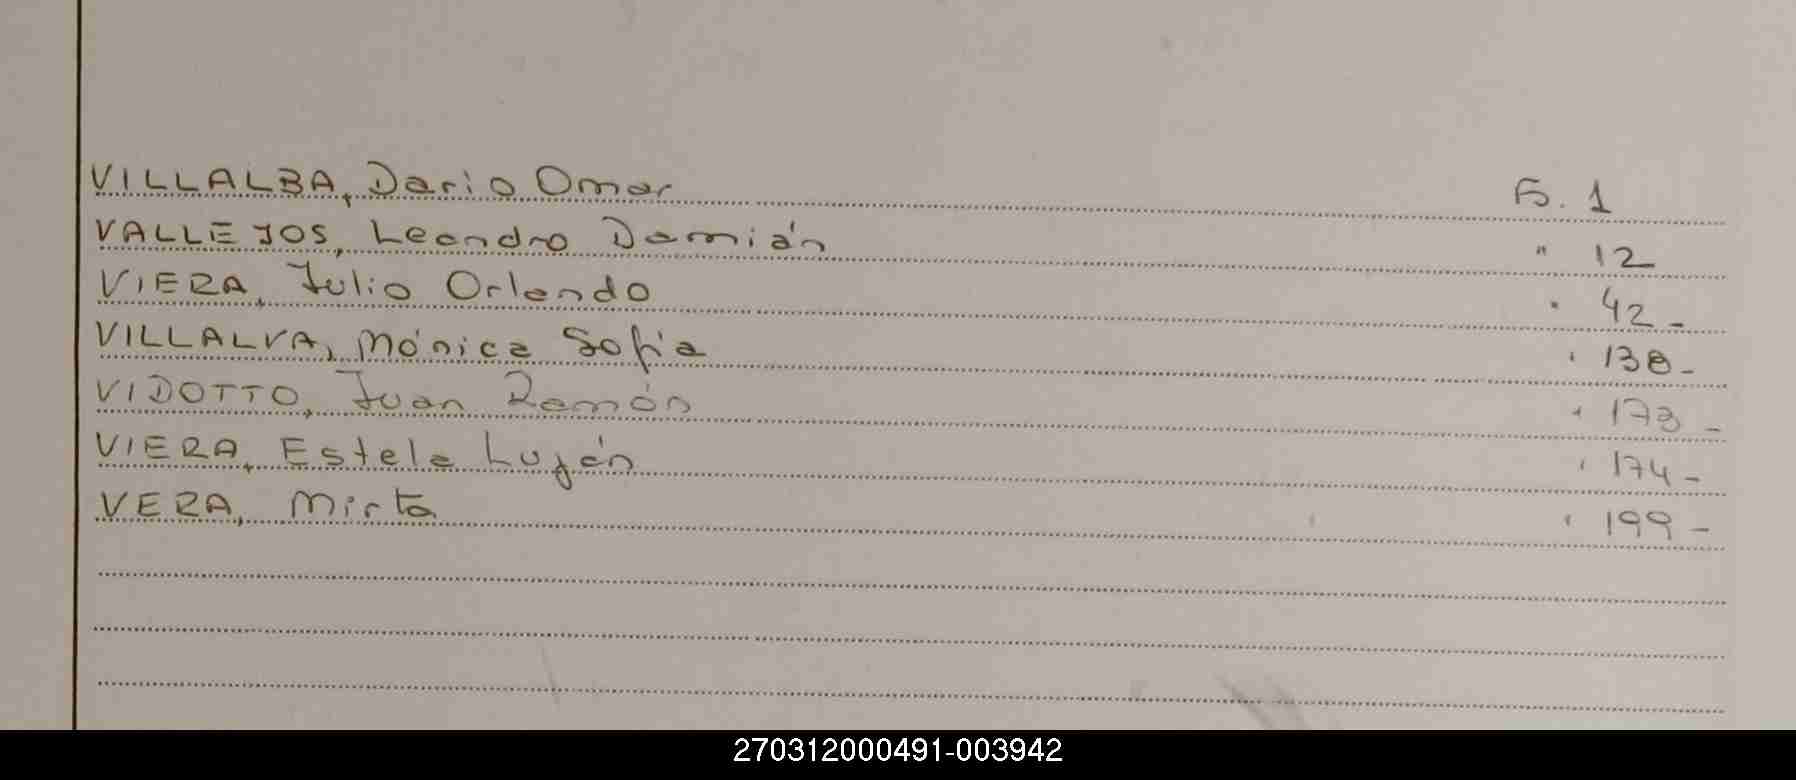 VILLALBA, Dario Omar Fs. 1
VALLEJOS, Leandro Damián " 12
VIERA, Julio Orlando " 42-
VILLALVA, Mónica Sofia " 138-
VIDOTTO, Juan Ramón " 173-
VIERA, Estela Luján " 174-
VERA, Mirta " 199-
270312000491-003942